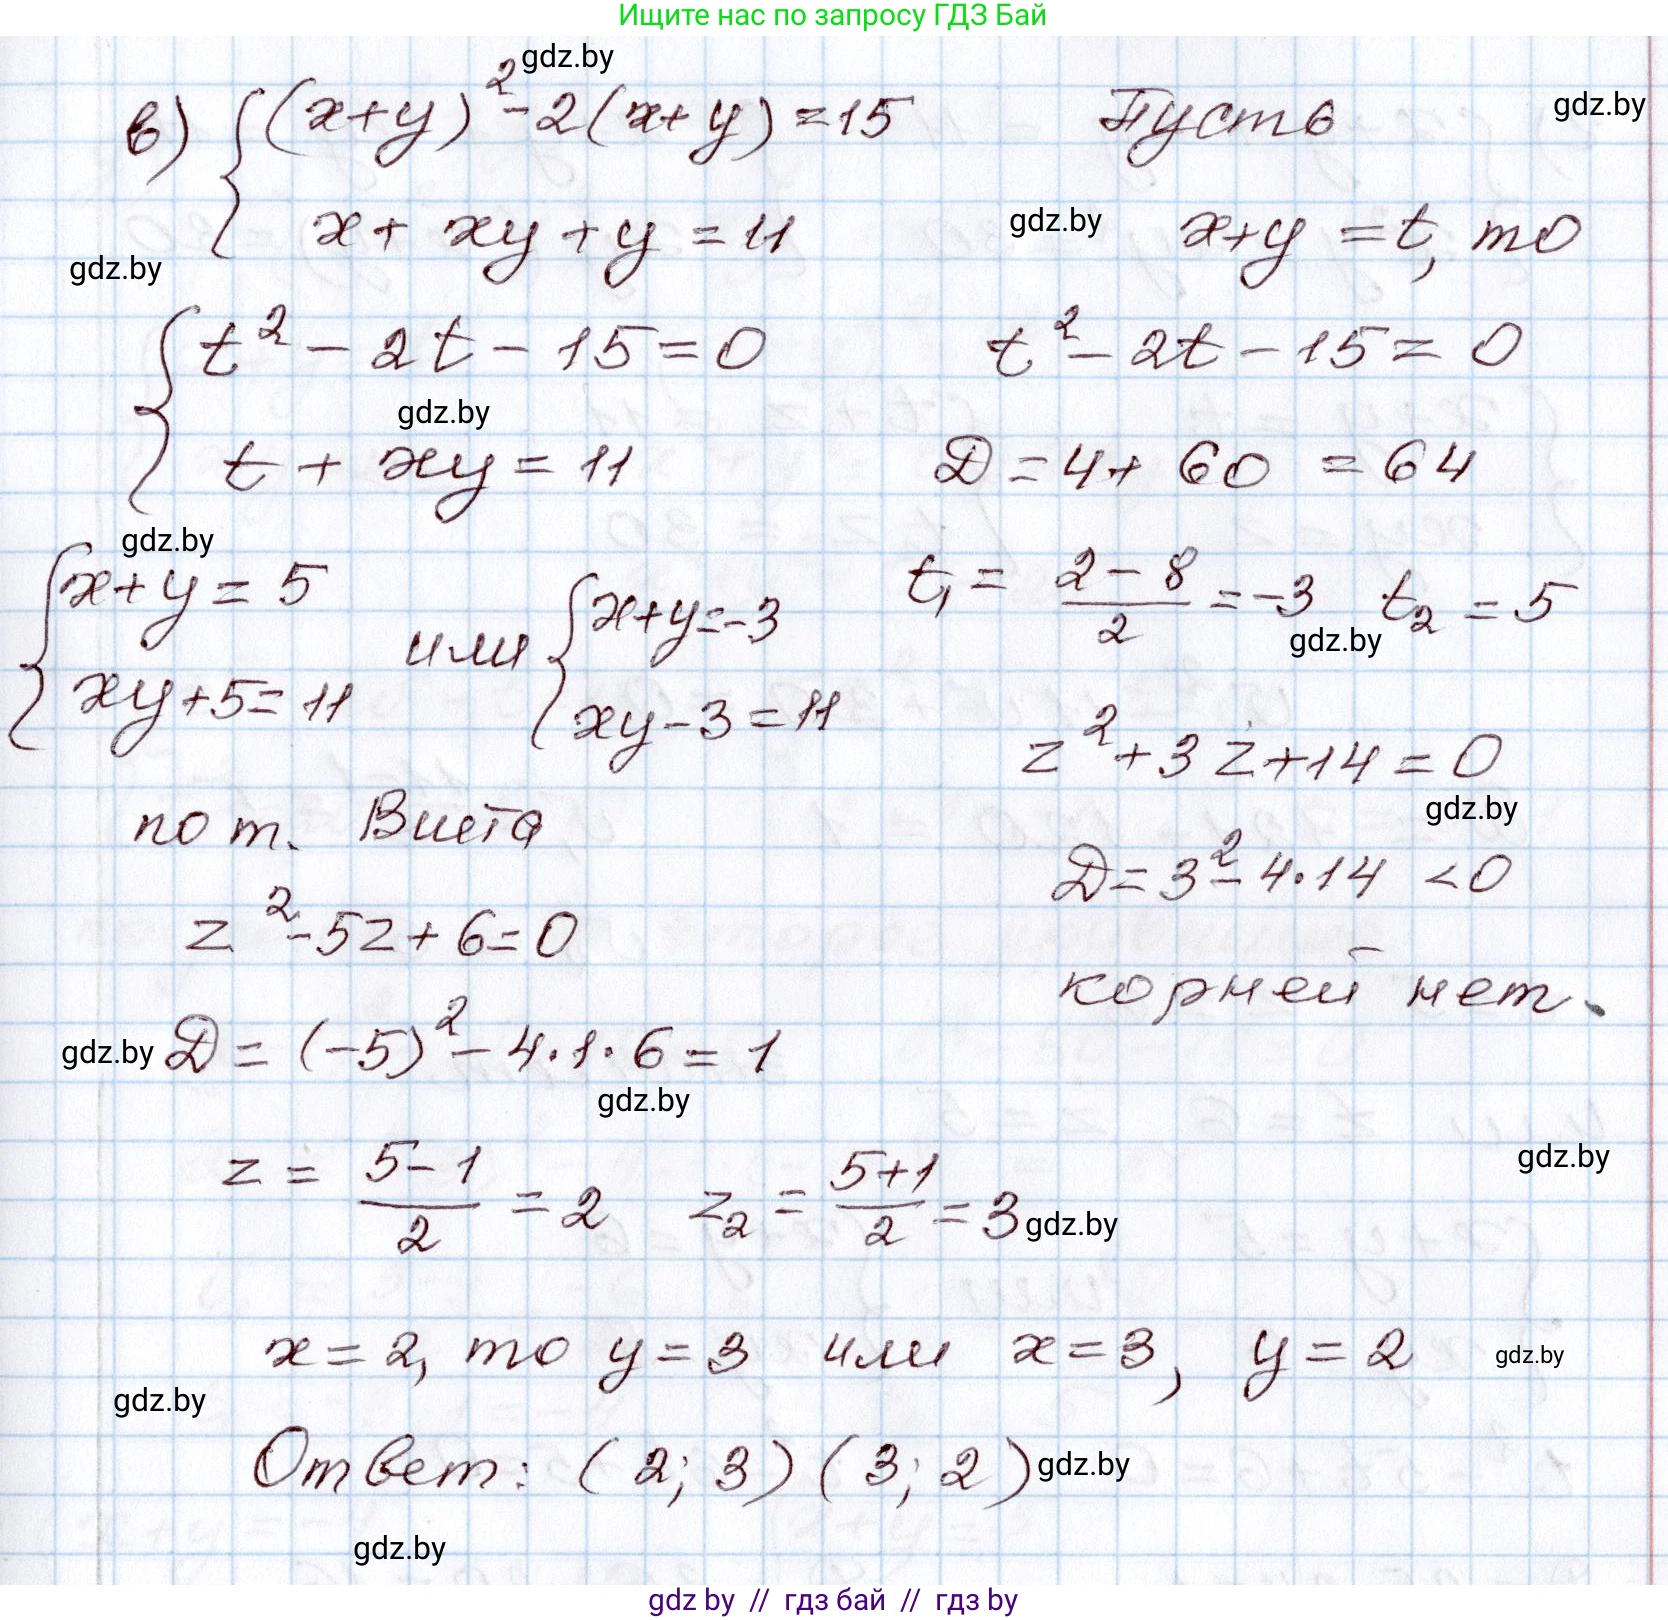 Ищите нас по запросу ГДЗ Бай
gdz.by
в) { (x+y)² - 2(x+y) = 15 Пусть gdz.by
x + xy + y = 11 gdz.by x+y = t, то
gdz.by
{ t² - 2t - 15 = 0 t² - 2t - 15 = 0
gdz.by
t + xy = 11 D = 4 + 60 = 64
gdz.by
{ x+y = 5 или { x+y = -3 t₁ = (2-8)/2 = -3 t₂ = 5
gdz.by
xy+5 = 11 xy-3 = 11 z² + 3z + 14 = 0
gdz.by
по т. Виета D = 3² - 4·14 < 0
z² - 5z + 6 = 0 корней нет.
gdz.by D = (-5)² - 4·1·6 = 1
gdz.by
gdz.by
z = (5-1)/2 = 2 z₂ = (5+1)/2 = 3 gdz.by
x = 2, то y = 3 или x = 3, y = 2 gdz.by
gdz.by
Ответ: (2; 3) (3; 2) gdz.by
gdz.by
gdz by // гдз бай // гдз by